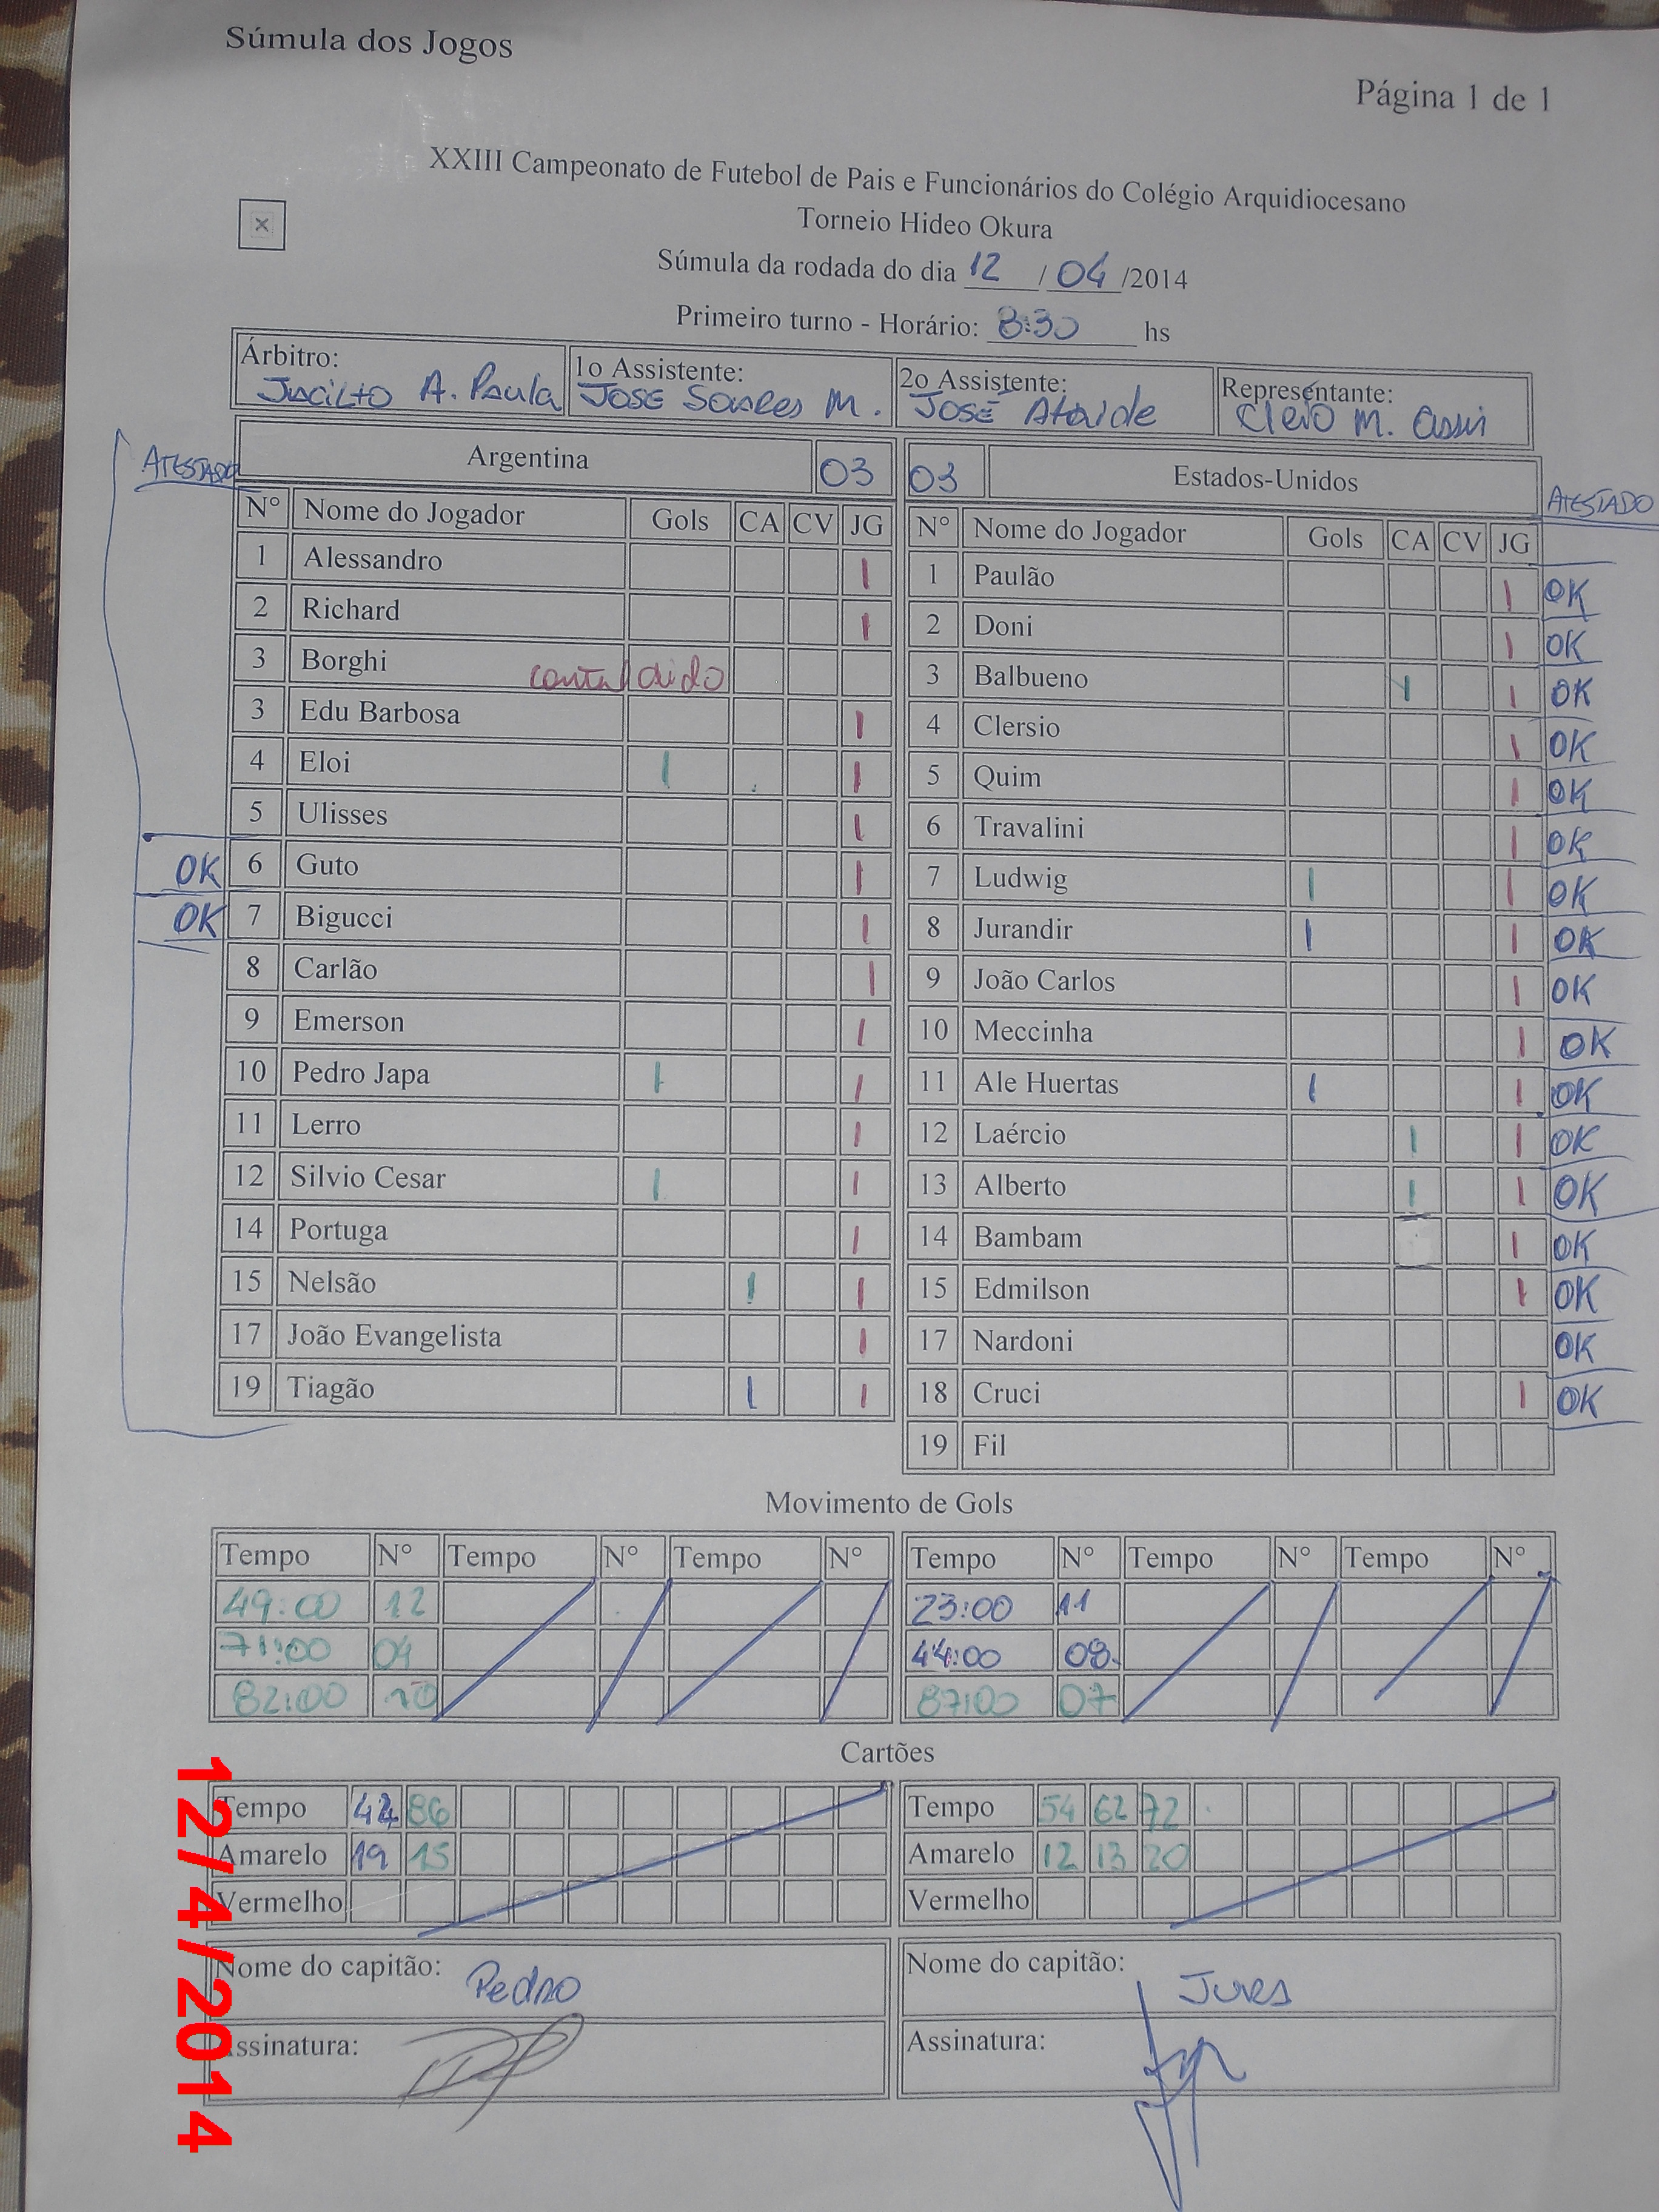 Súmula dos Jogos
Página 1 de 1
XXIII Campeonato de Futebol de Pais e Funcionários do Colégio Arquidiocesano
Torneio Hideo Okura
Súmula da rodada do dia 12 / 04 /2014
Primeiro turno - Horário: 8:30 hs
Árbitro: 1o Assistente: 2o Assistente: Representante:
A. Paula JOSÉ Soares M. JOSÉ Ataide Cleio M.
ATESTADO Argentina 03 03 Estados-Unidos ATESTADO
N° Nome do Jogador Gols CA CV JG N° Nome do Jogador Gols CA CV JG
1 Alessandro | 1 Paulão | OK
2 Richard | 2 Doni | OK
3 Borghi 3 Balbueno | | OK
3 Edu Barbosa | 4 Clersio | OK
4 Eloi | | 5 Quim | OK
5 Ulisses | 6 Travalini | OK
OK 6 Guto | 7 Ludwig | | OK
OK 7 Bigucci | 8 Jurandir | | OK
8 Carlão | 9 João Carlos | OK
9 Emerson | 10 Meccinha | OK
10 Pedro Japa | | 11 Ale Huertas | | OK
11 Lerro | 12 Laércio | | OK
12 Silvio Cesar | | 13 Alberto | | OK
14 Portuga | 14 Bambam | OK
15 Nelsão | | 15 Edmilson | OK
17 João Evangelista | 17 Nardoni OK
19 Tiagão | | 18 Cruci | OK
19 Fil
Movimento de Gols
Tempo N° Tempo N° Tempo N° Tempo N° Tempo N° Tempo N°
49:00 12 23:00 11
71:00 04 44:00 08
82:00 10 87:00 07
Cartões
Tempo 86 Tempo 54 62 72
Amarelo 19 15 Amarelo 12 13 20
Vermelho Vermelho
Nome do capitão: Pedro Nome do capitão: Jura
Assinatura: Assinatura:
12/4/2014